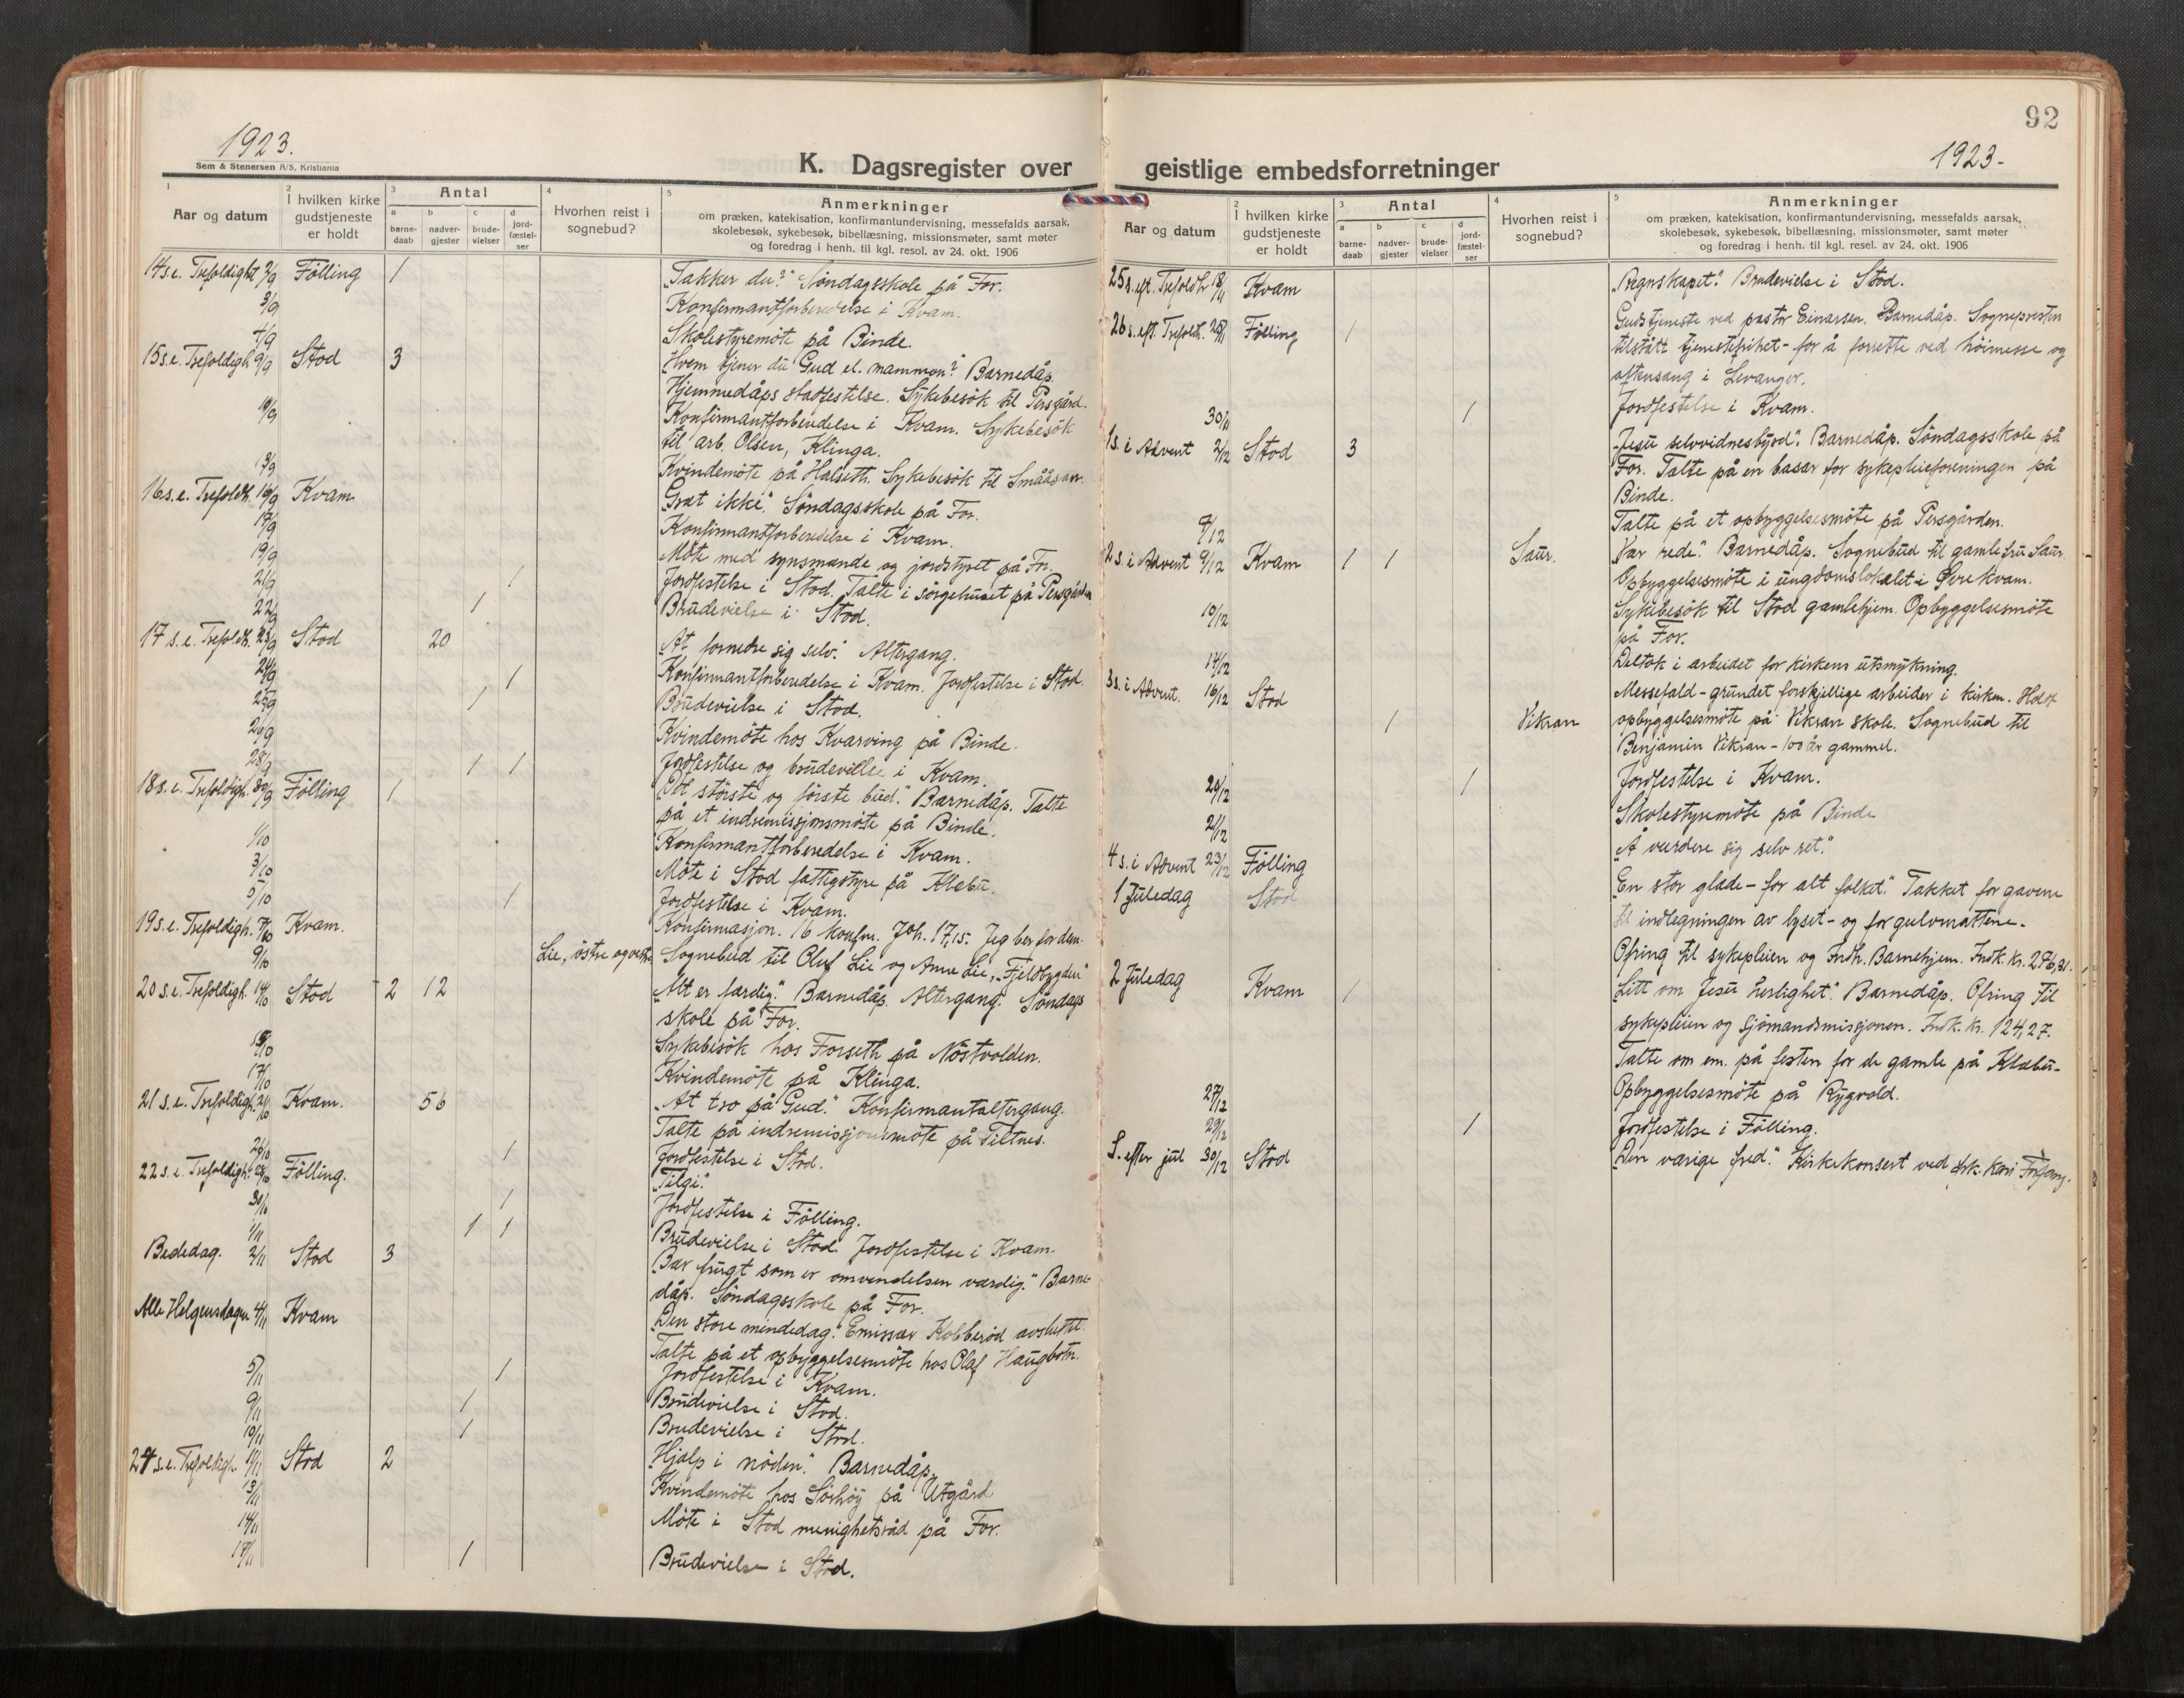 1923.
Sem & Stenersen A/S, Kristiania
K. Dagsregister over
1
Aar og datum
2
I hvilken kirke
gudstjeneste
er holdt
3
Antal
a
barne-
daab
b
nadver-
gjester
c
brude-
vielser
d
jord-
fæstel-
ser
4
Hvorhen reist i
sognebud?
5
Anmerkninger
om præken, katekisation, konfirmantundervisning, messefalds aarsak,
skolebesøk, sykebesøk, bibellæsning, missionsmøter, samt møter
og foredrag i henh. til kgl. resol. av 24. okt. 1906
14 s.e. Trefoldight 2/9 Fölling 1 „Takker du?" Söndagsskole på For.
3/9 Konfirmantforberedelse i Kvam.
4/9 Skolestyremöte på Binde.
15 s.e. Trefoldigh. 9/9 Stod 3 Hvem tjener du Gud el. mammon? Barnedåp.
Hjemmedåps stadfestelse. Sykebesök til Persgård.
10/9 Konfirmantforberedelse i Kvam. Sykebesök
til arb. Olsen, Klinga.
13/9 Kvindemöte på Halseth. Sykebesök til Smååsan.
16 s.e. Trefoldh. 16/9 Kvam „Gråt ikke". Söndagsskole på For.
17/9 Konfirmantforberedelse i Kvam.
19/9 Möte med synsmænde og jordstyret på For.
21/9 1 Jordfestelse i Stod. Talte i sörgehuset på Persgården
22/9 1 Brudevielse i Stod.
17 s.e. Trefoldh. 23/9 Stod 20 „At fornedre sig selv." Altergang.
24/9 1 Konfirmantforberedelse i Kvam. Jordfestelse i Stod.
25/9 1 Brudevielse i Stod.
26/9 Kvindemöte hos Kvarving på Binde.
28/9 1 1 Jordfestelse og brudevielse i Kvam.
18 s.e. Trefoldigh. 30/9 Fölling 1 „Det störste og förste bud." Barnedåp. Talte
på et indremissjonsmöte på Binde.
1/10 Konfirmantforberedelse i Kvam.
3/10 Möte i Stod fattigstyre på Klæbu.
5/10 1 Jordfestelse i Kvam.
19 s.e. Trefoldigh. 7/10 Kvam. Konfirmasjon. 16 konfm. Joh. 17,15. Jeg ber for dem.
9/10 Lie, östre og vestre Sognebud til Oluf Lie og Anne Lie, „Fjeldbygden"
20 s.e. Trefoldigh. 14/10 Stod 2 12 „Alt er færdig." Barnedåp. Altergang. Söndags
skole på For.
15/10 Sykebesök hos Forseth på Nöstvolden.
17/10 Kvindemöte på Klinga.
21 s.e. Trefoldigh. 21/10 Kvam. 56 „At tro på Gud." Konfirmantaltergang.
Talte på indremissjonsmöte på Tiltnes.
26/10 1 Jordfestelse i Stod.
22 s.e. Trefoldigh. 28/10 Fölling. „Tilgi".
30/10 1 Jordfestelse i Fölling.
1/11 1 1 Brudevielse i Stod. Jordfestelse i Kvam.
Bededag. 2/11 Stod 3 „Bær frugt som er omvendelsen værdig." Barne-
dåp. Söndagsskole på For.
Alle Helgensdagen 4/11 Kvam „Den store mindedag." Emissær Kobberöd avsluttet.
Talte på et opbyggelsesmöte hos Olaf Haugbotn.
5/11 1 Jordfestelse i Kvam.
9/11 1 Brudevielse i Stod.
10/11 1 Brudevielse i Stod.
24 s.e. Trefoldigh. 11/11 Stod 2 „Hjælp i nöden". Barnedåp.
13/11 Kvindemöte hos på Utgård
14/11 Möte i Stod menighetsråd på For.
17/11 1 Brudevielse i Stod.
92
1923-
geistlige embedsforretninger
Aar og datum
2
I hvilken kirke
gudstjeneste
er holdt
3
Antal
a
barne-
daab
b
nadver-
gjester
c
brude-
vielser
d
jord-
fæstel-
ser
4
Hvorhen reist i
sognebud?
5
Anmerkninger
om præken, katekisation, konfirmantundervisning, messefalds aarsak,
skolebesøk, sykebesøk, bibellæsning, missionsmøter, samt møter
og foredrag i henh. til kgl. resel. av 24. okt. 1906
25 s. eft. Trefoldh 18/11 Kvam „Regnskapet". Brudevielse i Stod.
26 s. eft. Trefoldh. 25/11 Fölling 1 Gudstjeneste ved pastor Einarsen. Barnedåp. Sognepresten
tilstått tjenestefrihet - for å forrette ved höimesse og
aftensang i Levanger.
30/11 1 Jordfestelse i Kvam.
1 s. i Advent 2/12 Stod 3 „Jesu selvvidnesbyrd". Barnedåp. Söndagsskole på
For. Talte på en basar for sykepleieforeningen på
Binde.
7/12 Talte på et opbyggelsesmöte på Persgården.
2 s. i Advent 9/12 Kvam 1 1 Saur. „Vær rede". Barnedåp. Sognebud til gamle fru Saur.
Opbyggelsesmöte i ungdomslokalet i Övre Kvam.
10/12 Sykebesök til Stod gamlehjem. Opbyggelsesmöte
på For.
14/12 Deltok i arbeidet for kirkens utsmykning.
3 s. i Advent. 16/12 Stod Messefald - grundet forskjellige arbeider i kirken. Holdt
1 Vikran opbyggelsesmöte på Vikran skole. Sognebud til
Benjamin Vikran - 100 år gammel.
20/12 1 Jordfestelse i Kvam.
21/12 Skolestyremöte på Binde
4 s. i Advent 23/12 Fölling „Å vurdere sig selv ret."
1 Juledag Stod „En stor glæde - for alt folket." Takket for gavene
til indlegningen av lyset - og for gulvmattene.
Ofring til sykepleien og Indh. Barnehjem. Indk. kr. 276,81.
2 Juledag Kvam 1 „Litt om Jesu herlighet". Barnedåp. Ofring til
sykepleien og Sjömandsmissjonen. Indk. kr. 124,27.
Talte om em. på festen for de gamle på Klæbu.
27/12 Opbyggelsesmöte på Rygvold.
29/12 1 Jordfestelse i Fölling.
S. efter jul 30/12 Stod „Den varige fred." Kirkekonsert ved frk. Kari